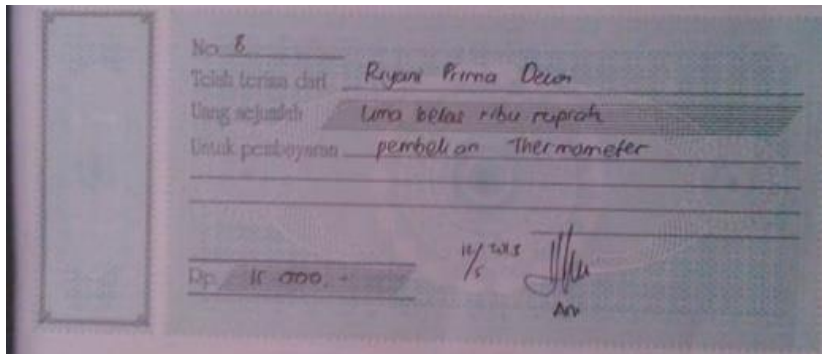 No. 8
Telah terima dari Riyani Prima Dewi
Uang sejumlah Lima belas ribu rupiah
Untuk pembayaran pembelian Thermometer
Rp. 15 000, -